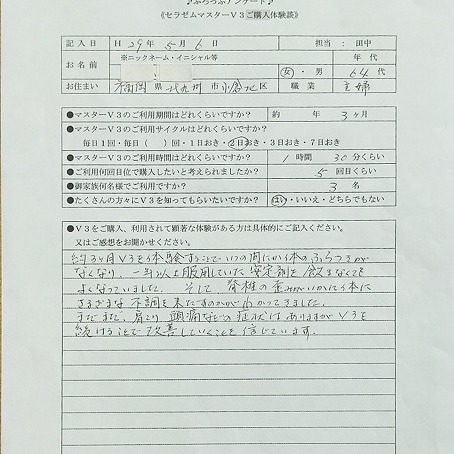 ♪ふらっぷアンケート♪
《セラゼムマスターV3ご購入体験談》
記入日 H 29年 5月 6日 担当:田中
お名前 ※ニックネーム・イニシャル等 年代
女・男 64代
お住まい 福岡 県 北九州 市 小倉北 区 職業 主婦
●マスターV3のご利用期間はどれくらいですか? 約 年 3ヶ月
●マスターV3のご利用サイクルはどれくらいですか?
毎日1回・毎日( )回・1日おき・2日おき・3日おき・7日おき
●マスターV3のご利用時間はどれくらいですか? 1時間 30分くらい
●ご利用何回目位で購入したいと考えられましたか? 5回目くらい
●御家族何名様でご利用ですか? 3名
●たくさんの方々にV3を知ってもらいたいですか? はい・いいえ・どちらでもない
●V3をご購入、利用されて顕著な体験がある方は具体的にご記入ください。
又はご感想をお聞かせください。
約3ヶ月V3を体験することでいつの間にか体のふらつきが
なくなり、一年以上服用していた安定剤を飲まなくても
よくなっていました。そして、脊椎の歪みがいかに体に
さまざまな不調を来たすのかがわかってきました。
まだまだ、肩こり、頭痛などの症状はありますがV3を
続けることで改善していくことを信じています。